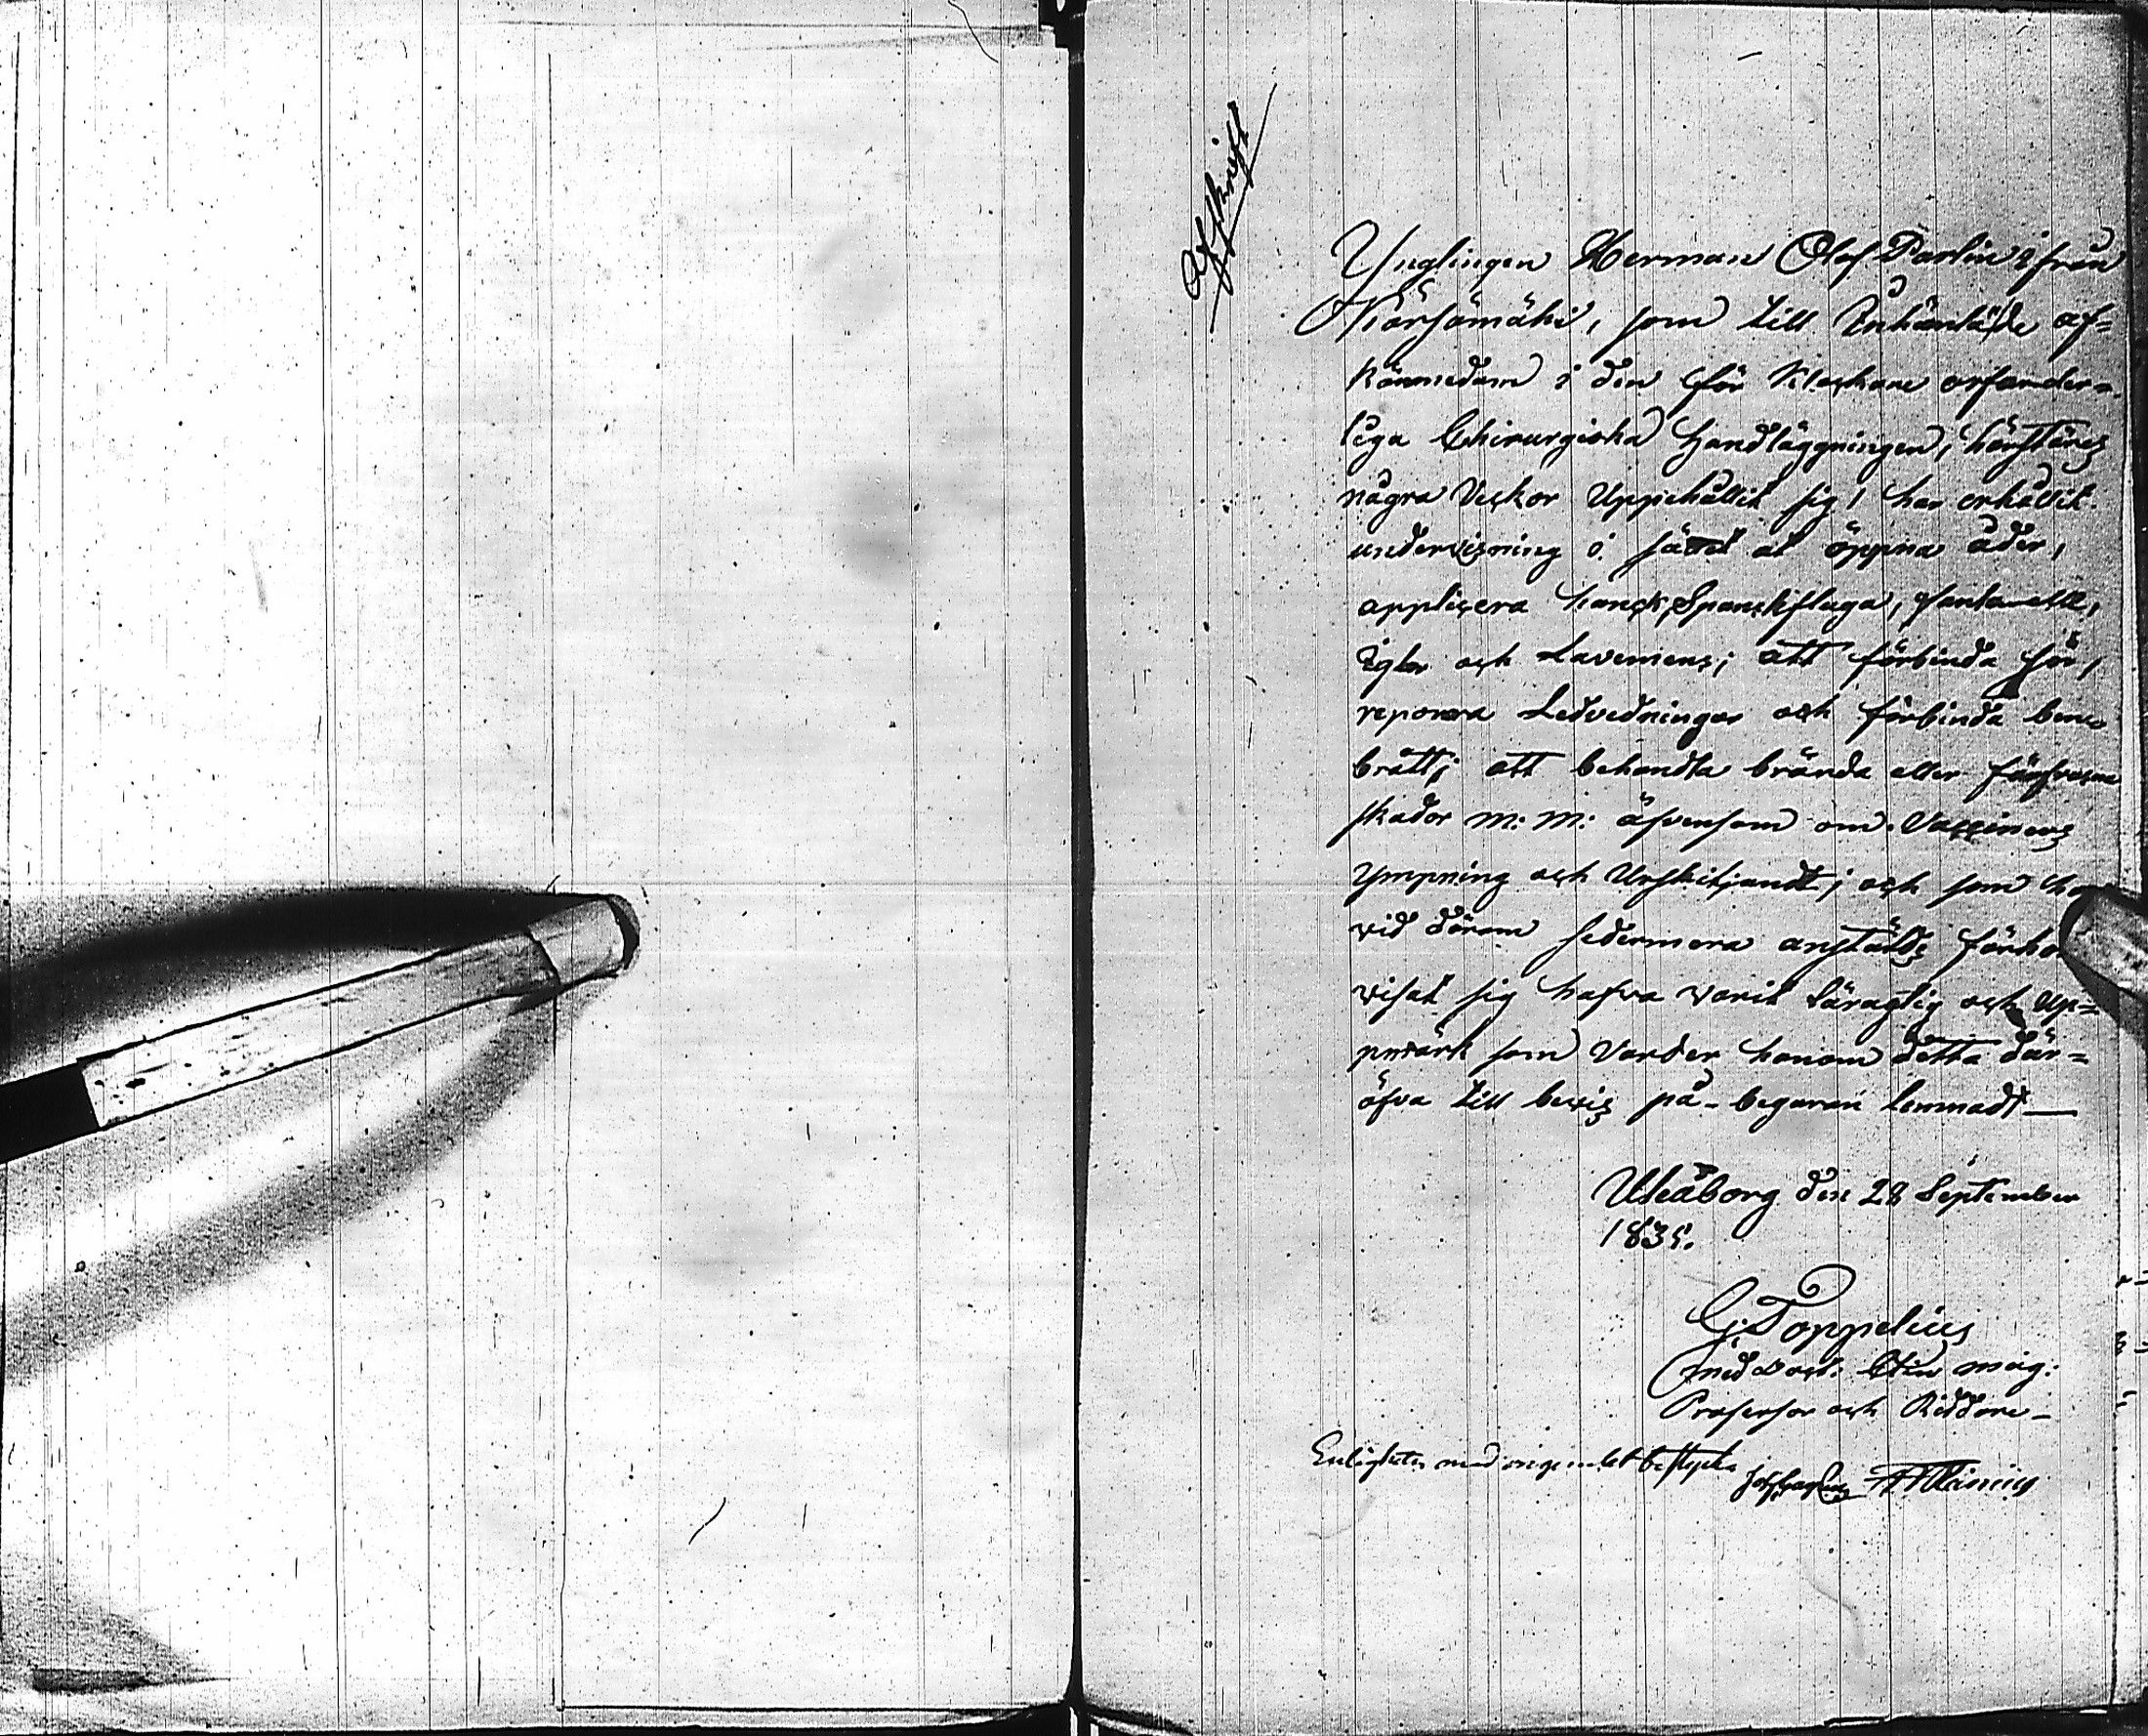 Afskrift
Ynglingen Herman Olof Parlin ifrån
Kärsämäki, som till Inhämtäde af
kännedom i den för Klockare erforder-
liga Chirurgiska Handläggningen, härstädes
några Veckor Uppehållit sig, har erhållit
undervisning i sättet at öppna åder,
applicera hanck, Spanskfluga, fontanelle,
Iglar och Lavemens; att förbinda sår,
reponera Ledvedningar och förbinda bene-
brått; att behandla brända eller förfrosna
skador m: m: äfvensom om Vaccinens
Ympning och Urskiljandt; och som
vid därom sedermera anstäldt
visat sig hafva varit läragtig och Up-
pmärk som Varder honom detta där-
öfva till bevis på begäran lemnadt —
Uleåborg den 28 September
1835.
G. Toppelius
Med: Doct: mag:
Professor och Riddare —
Enligheten med originalet bestyrka